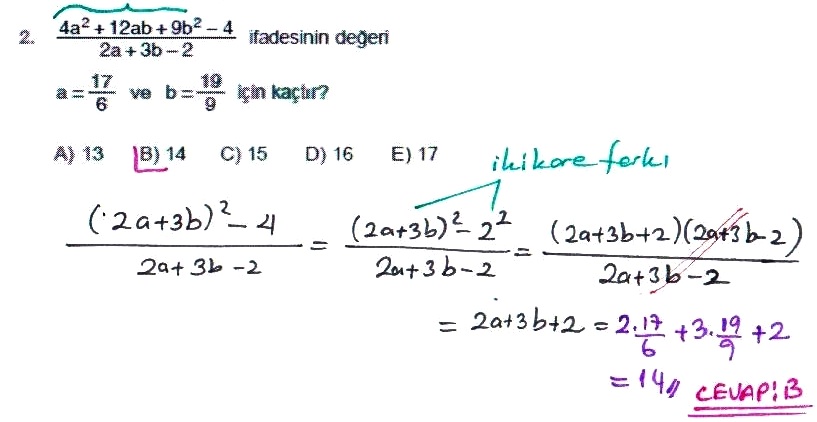 2. (4a² + 12ab + 9b² − 4)/(2a + 3b − 2) ifadesinin değeri
a = 17/6 ve b = 19/9 için kaçtır?
A) 13 B) 14 C) 15 D) 16 E) 17
iki kare farkı
((2a+3b)² − 4)/(2a+3b−2) = ((2a+3b)² − 2²)/(2a+3b−2) = ((2a+3b+2)(2a+3b−2))/(2a+3b−2)
= 2a+3b+2 = 2.17/6 + 3.19/9 + 2
= 14 //
CEVAP: B